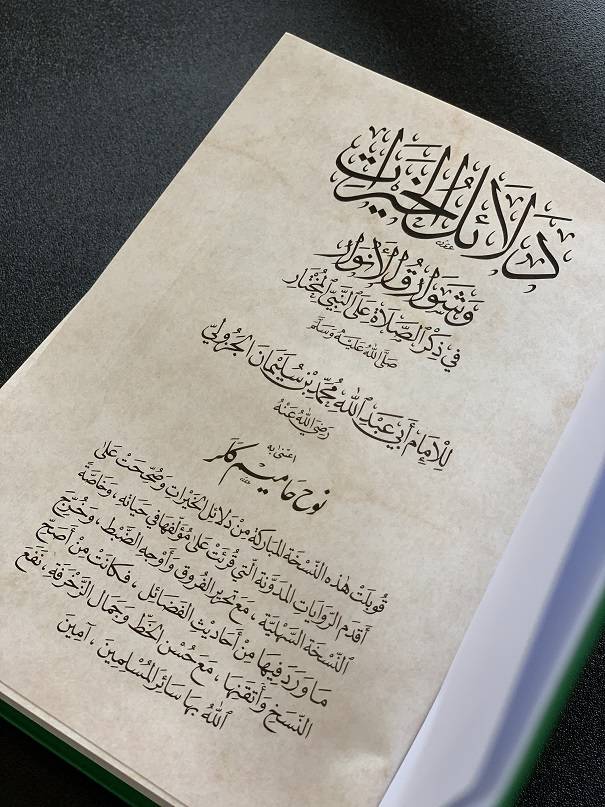 دَلَائِلُ الخَيْرَاتِ
وَشَوَارِقُ الأَنْوَارِ
فِي ذِكْرِ الصَّلَاةِ عَلَى النَّبِيِّ المُخْتَارِ
صَلَّى اللهُ عَلَيْهِ وَسَلَّمَ
لِلْإِمَامِ أَبِي عَبْدِ اللهِ مُحَمَّدِ بْنِ سُلَيْمَانَ الجَزُولِيِّ
رَضِيَ اللهُ عَنْهُ
اعتنى به
نوح حاميم كلر
قُوبِلَتْ هٰذِهِ النُّسْخَةُ المُبَارَكَةُ مِنْ دَلَائِلِ الخَيْرَاتِ وَصُحِّحَتْ عَلَى
أَقْدَمِ الرِّوَايَاتِ المُدَوَّنَةِ الَّتِي قُرِئَتْ عَلَى مُؤَلِّفِهَا فِي حَيَاتِهِ، وَخَاصَّةً
النُّسْخَةِ السَّهْلِيَّةِ، مَعَ تَحْرِيرِ الفُرُوقِ وَأَوْجُهِ الضَّبْطِ، وَخُرِّجَ
مَا وَرَدَ فِيهَا مِنْ أَحَادِيثِ الفَضَائِلِ، فَكَانَتْ مِنْ أَصَحِّ
النُّسَخِ وَأَتْقَنِهَا، مَعَ حُسْنِ الخَطِّ وَجَمَالِ الزَّخْرَفَةِ، نَفَعَ
اللهُ بِهَا سَائِرَ المُسْلِمِينَ، آمِينَ